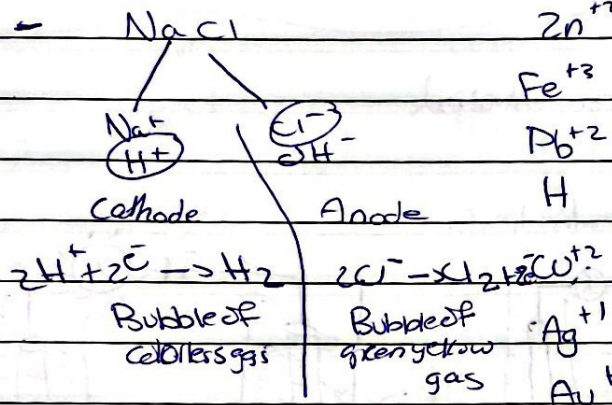 - NaCl
Na+ Cl-
H+ OH-
Cathode Anode
2H+ + 2e- -> H2 2Cl- -> Cl2 + 2e-
Bubble of Bubble of
colorless gas green yellow
gas
Zn+2
Fe+3
Pb+2
H
Cu+2
Ag+1
Au